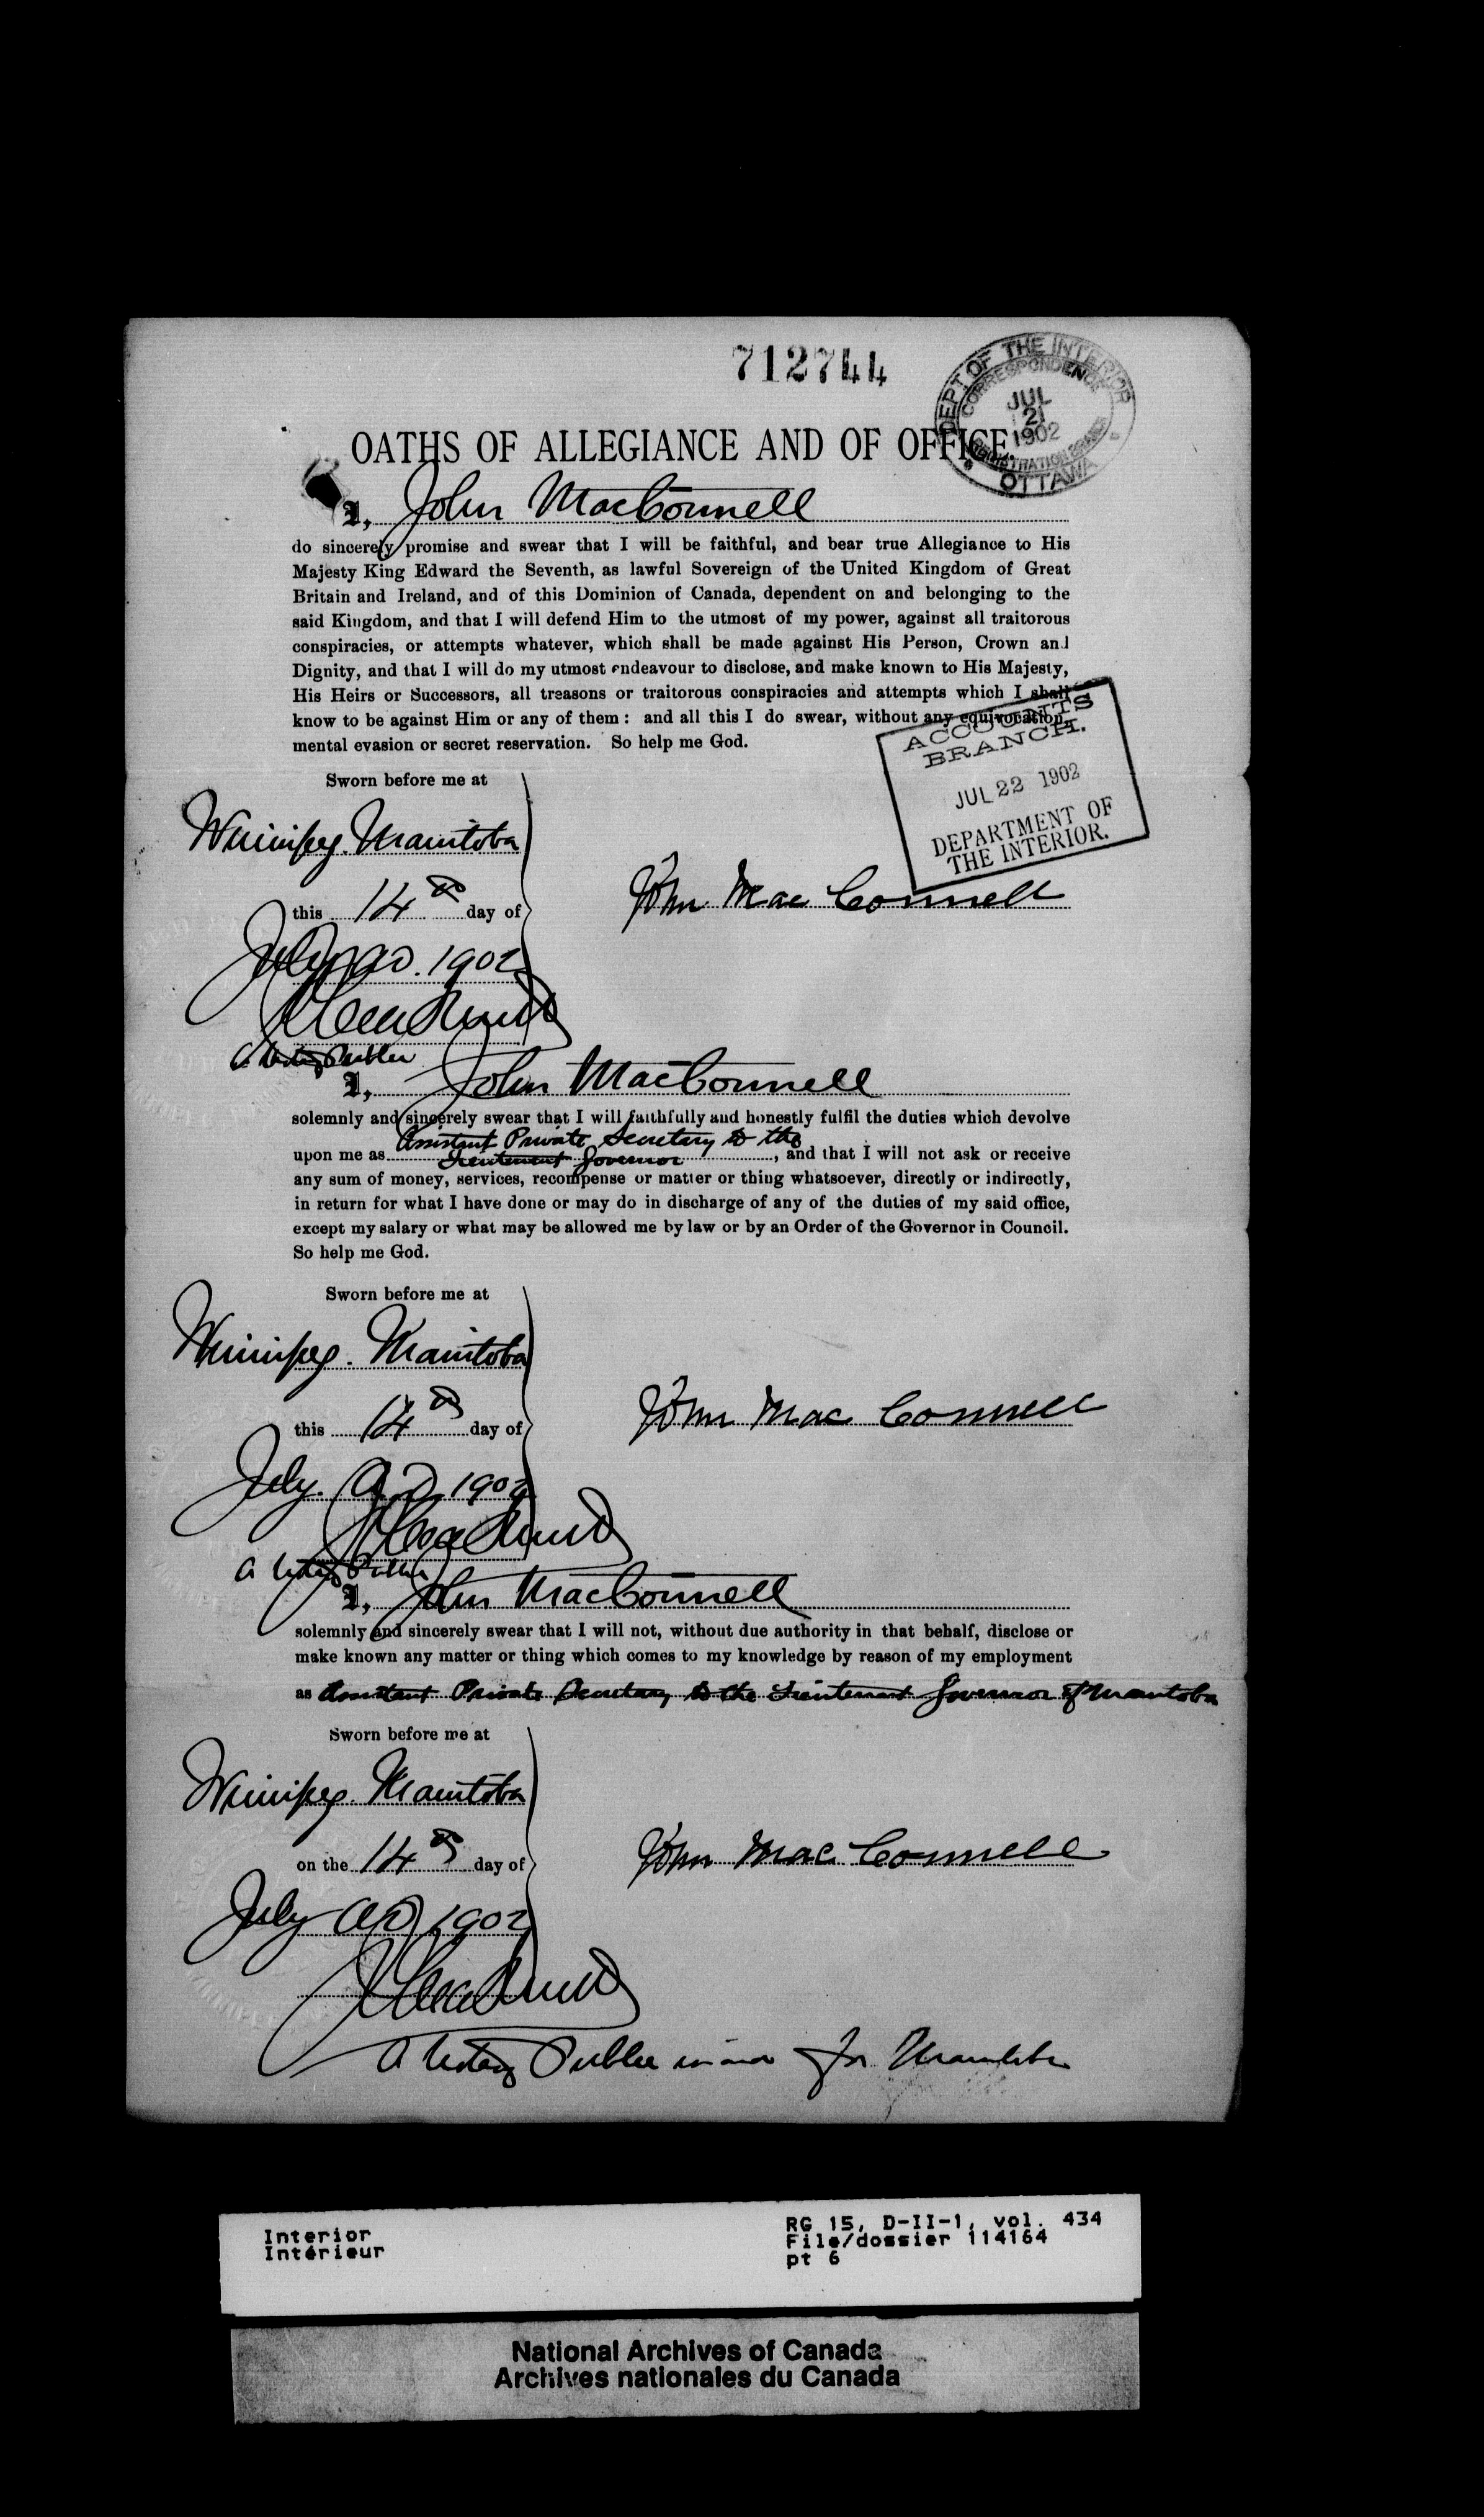 712744
DEPT OF THE INTERIOR
CORRESPONDENCE
JUL
21
1902
REGISTRATION BRANCH
OTTAWA
OATHS OF ALLEGIANCE AND OF OFFICE.
I, John MacConnell
do sincerely promise and swear that I will be faithful, and bear true Allegiance to His
Majesty King Edward the Seventh, as lawful Sovereign of the United Kingdom of Great
Britain and Ireland, and of this Dominion of Canada, dependent on and belonging to the
said Kingdom, and that I will defend Him to the utmost of my power, against all traitorous
conspiracies, or attempts whatever, which shall be made against His Person, Crown and
Dignity, and that I will do my utmost endeavour to disclose, and make known to His Majesty,
His Heirs or Successors, all treasons or traitorous conspiracies and attempts which I shall
know to be against Him or any of them : and all this I do swear, without any equivocation,
mental evasion or secret reservation. So help me God.
ACCOUNTS
BRANCH.
JUL 22 1902
DEPARTMENT OF
THE INTERIOR.
Sworn before me at
Winnipeg. Manitoba
this 14th day of
John MacConnell
July AD. 1902
A Notary Public
I, John MacConnell
solemnly and sincerely swear that I will faithfully and honestly fulfil the duties which devolve
Assistant Private Secretary to the
upon me as Lieutenant Governor, and that I will not ask or receive
any sum of money, services, recompense or matter or thing whatsoever, directly or indirectly,
in return for what I have done or may do in discharge of any of the duties of my said office,
except my salary or what may be allowed me by law or by an Order of the Governor in Council.
So help me God.
Sworn before me at
Winnipeg. Manitoba
this 14th day of
John MacConnell
July. A.D. 1902
A Notary Public
I, John MacConnell
solemnly and sincerely swear that I will not, without due authority in that behalf, disclose or
make known any matter or thing which comes to my knowledge by reason of my employment
as Assistant Private Secretary to the Lieutenant Governor of Manitoba
Sworn before me at
Winnipeg. Manitoba
on the 14th day of
John MacConnell
July AD 1902
A Notary Public in and for Manitoba
Interior
Intérieur
RG 15, D-II-1, vol. 434
File/dossier 114164
pt 6
National Archives of Canada
Archives nationales du Canada